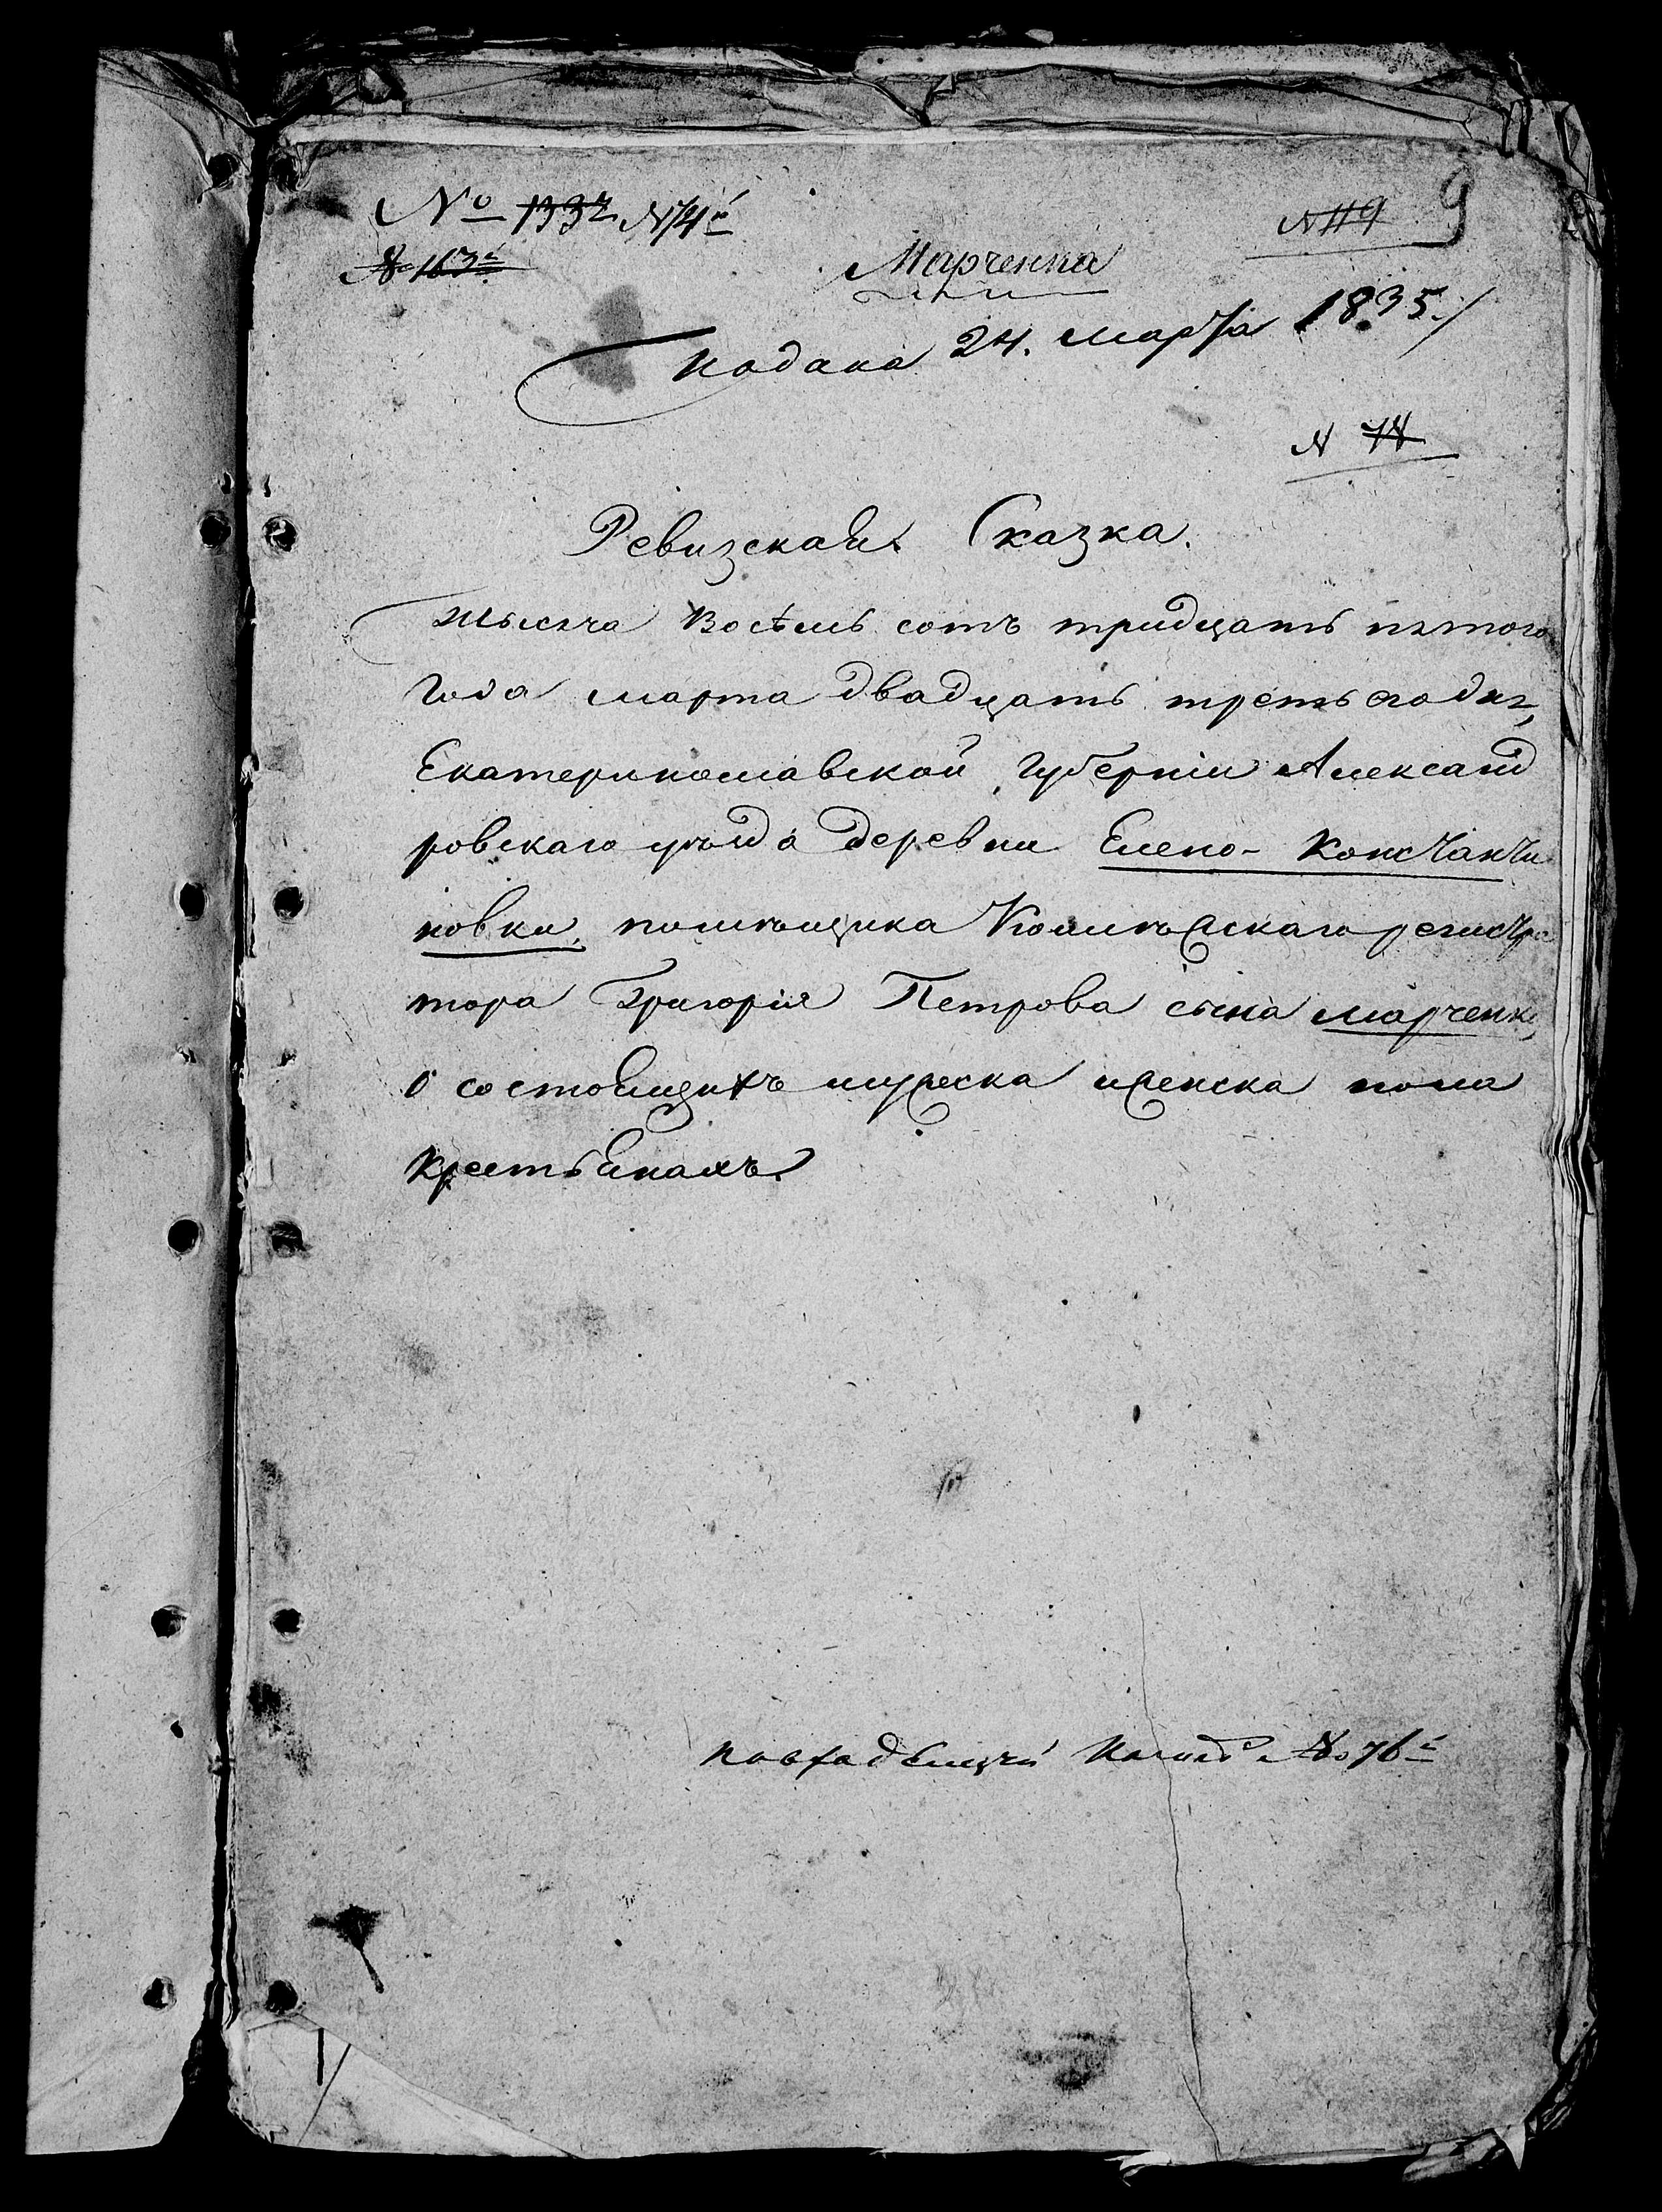 № 1332 № 74й
№ 163й
№ 119 9
Марченка
Подана 24. Марта 1835./
№ 74
Ревизская Сказка.
тысяча Восѣмь сотъ тридцать пятого
Года марта двадцать третьяго дня,
Екатеринославской Губерніи Александ
ровскаго уѣзда деревни Елено- Константи
новки, помѣщика Колежскаго регистра
тора Григорія Петрова сына Марченка,
о состоящихъ мужеска иженска пола
крестьянахъ.
№ 76й